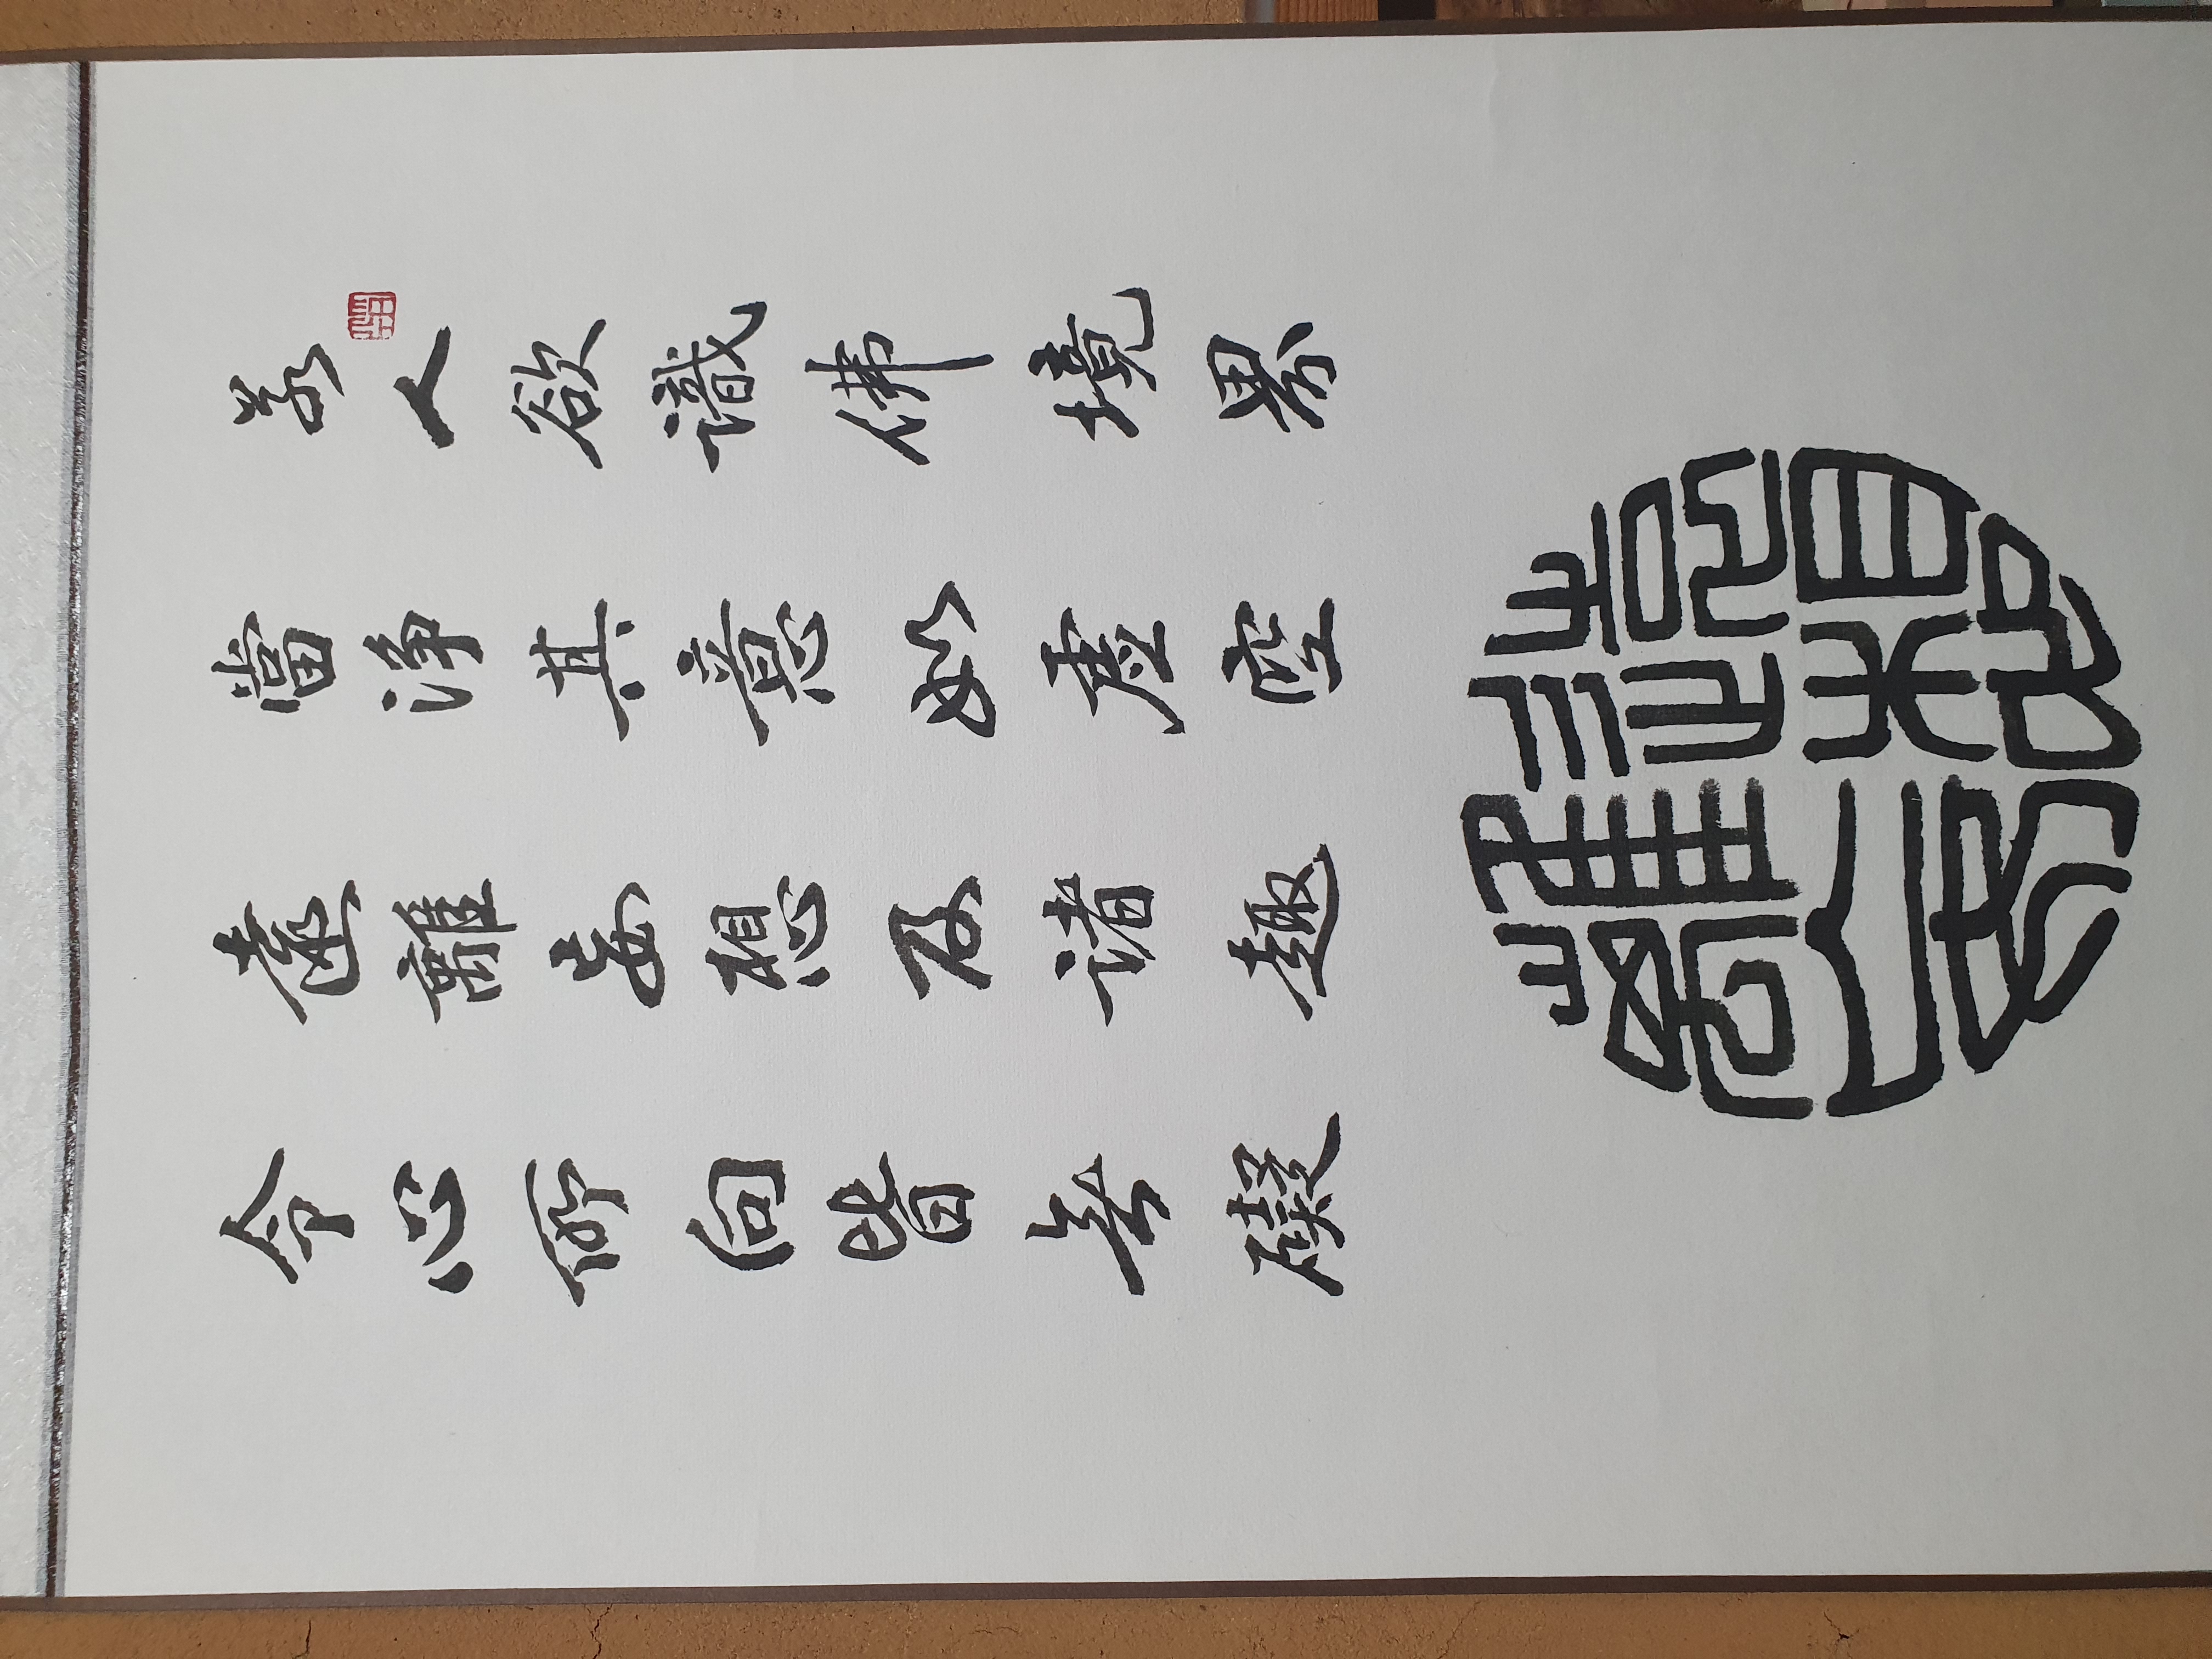 若人欲識佛境界
當淨其意如虛空
遠離妄想及諸趣
令心所向皆無礙